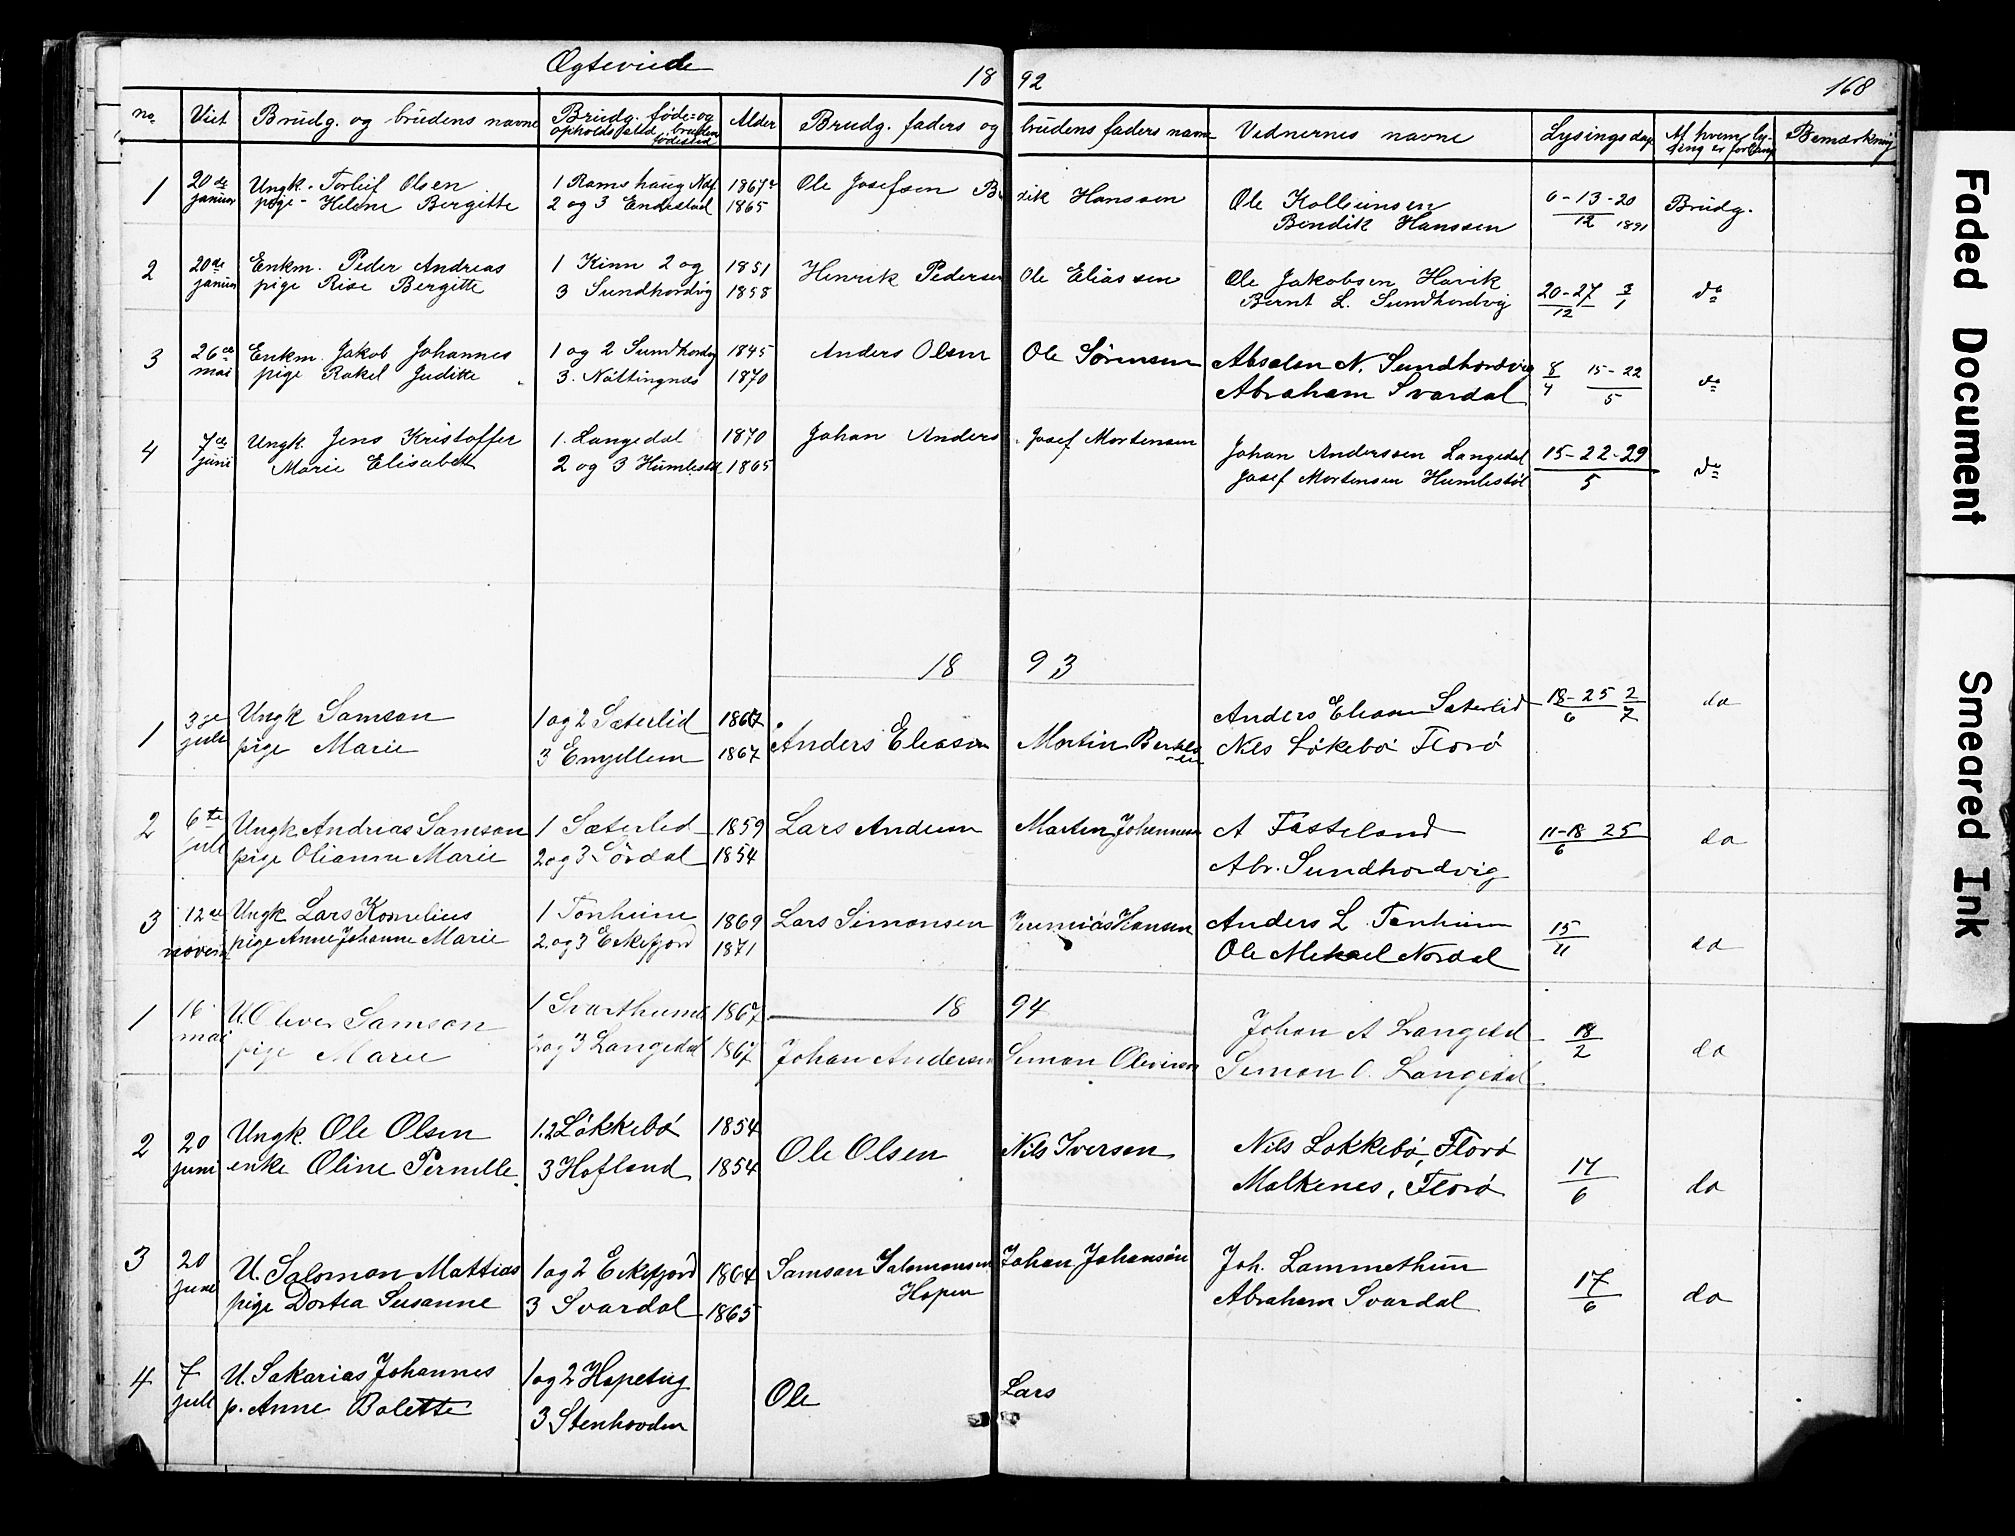 Ægteviede 18 92 168
no. Viet Brudg. og brudens navne Brudg. føde- og opholdssted, brudens fødested Alder Brudg. faders og brudens faders navn Vidnernes navne Lysingsdag Af hvem lysing er forlangt Bemærkning
1 20de januar Ungk. Torleif Olsen 1 Ramshaug Nof 1867 Ole Josefsen Bendik Hanssen Ole Kolbeinsen 6-13-20 Brudg.
pige - Helene Bergitte 2 og 3 Endestad 1865 Bendik Hanssen 12 1891
2 20de januar Enkm. Peder Andreas 1 Kinn 2 og 1851 Henrik Pedersen Ole Eliassen Ole Jakobsen Havik 20-27 3 do
pige Rise Bergitte 3 Sundhordvig 1858 Bernt L. Sundhordvig 12 1
3 26de mai Enkm. Jakob Johannes 1 og 2 Sundhordvig 1845 Anders Olsen Ole Sörensen Absalon N. Sundhordvig 8 15-22 do
pige Rakel Juditte 3. Nöttingnæs 1870 Abraham Svardal 4 5
4 7de juni Ungk. Jens Kristoffer 1. Langedal 1870 Johan Anders Josef Mortensen Johan Anderssen Langedal 15-22-29 do
Marie Elisabet 2 og 3 Humlestöl 1865 Josef Mortensen Humlestöl 5
18 93
1 3de juli Ungk Samson 1 og 2 Sæterlid 1867 Anders Eliasen Martin Anders Eliasen Sæterlid 18-25 2 do
pige Marie 3 1867 Nils Løkebø Florø 6 7
2 6te juli Ungk Andrias Samson 1 Sæterlid 1859 Lars Andersen Martin Johannesen A Fasteland 11-18 25 do
pige Olianna Marie 2 og 3 Sørdal 1854 Abr. Sundhordvig 6
3 12te novem Ungk Lars Kornelius 1 Tonheim 1869 Lars Simonsen Jeremias Hansen Anders L. Tonheim 15 do
pige Anne Johanne Marie 2 og 3 Eikefjord 1871 Ole Mikael Nordal 11
18 94
1 16 mai U. Oliver Samson 1 Svarthumle 1867 Johan Andersen Simon Oliverson Johan A Langedal 18 do
pige Marie 2 og 3 Langedal 1867 Simon O. Langedal 2
2 20 juni Ungk. Ole Olsen 1.2 Løkkebø 1854 Ole Olsen Nils Iversen Nils Løkkebø, Florø 17 do
enke Oline Pernelle 3 Hofland 1854 Malkenes, Florø 6
3 20 juni U. Salomon Mattias 1 og 2 Eikefjord 1864 Samson Salomonsen Johan Johansøn Joh. Lammethun 17 do
pige Dortea Susanne 3 Svardal 1865 Hopen Abraham Svardal 6
4 7 juli U. Sakarias Johannes 1 og 2 Hopeteig Ole Lars
p. Anne Bolette 3 Stenhovden
Faded Document
Smeared Ink